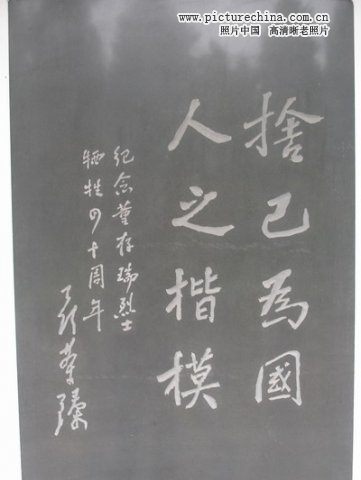 www.picturechina.com.cn
照片中国 高清晰老照片
捨己為國
人之楷模
纪念董存瑞烈士
牺牲四十周年
聂荣臻